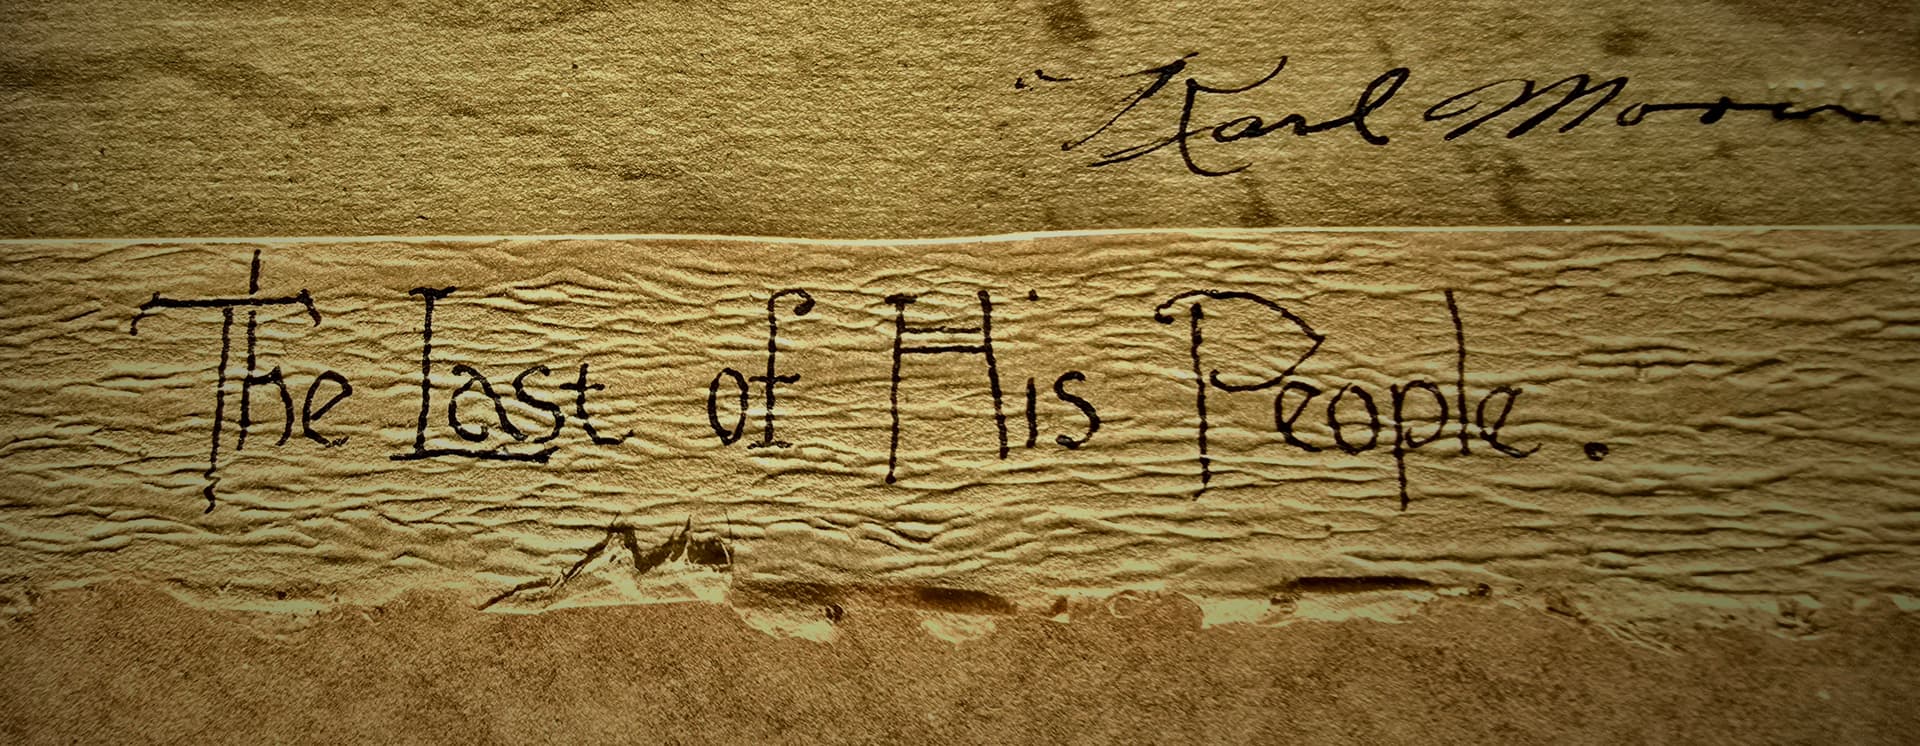 Karl Moon
The Last of His People.